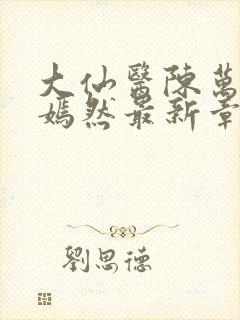 大仙醫陳萬
嫣然最新章
劉思德